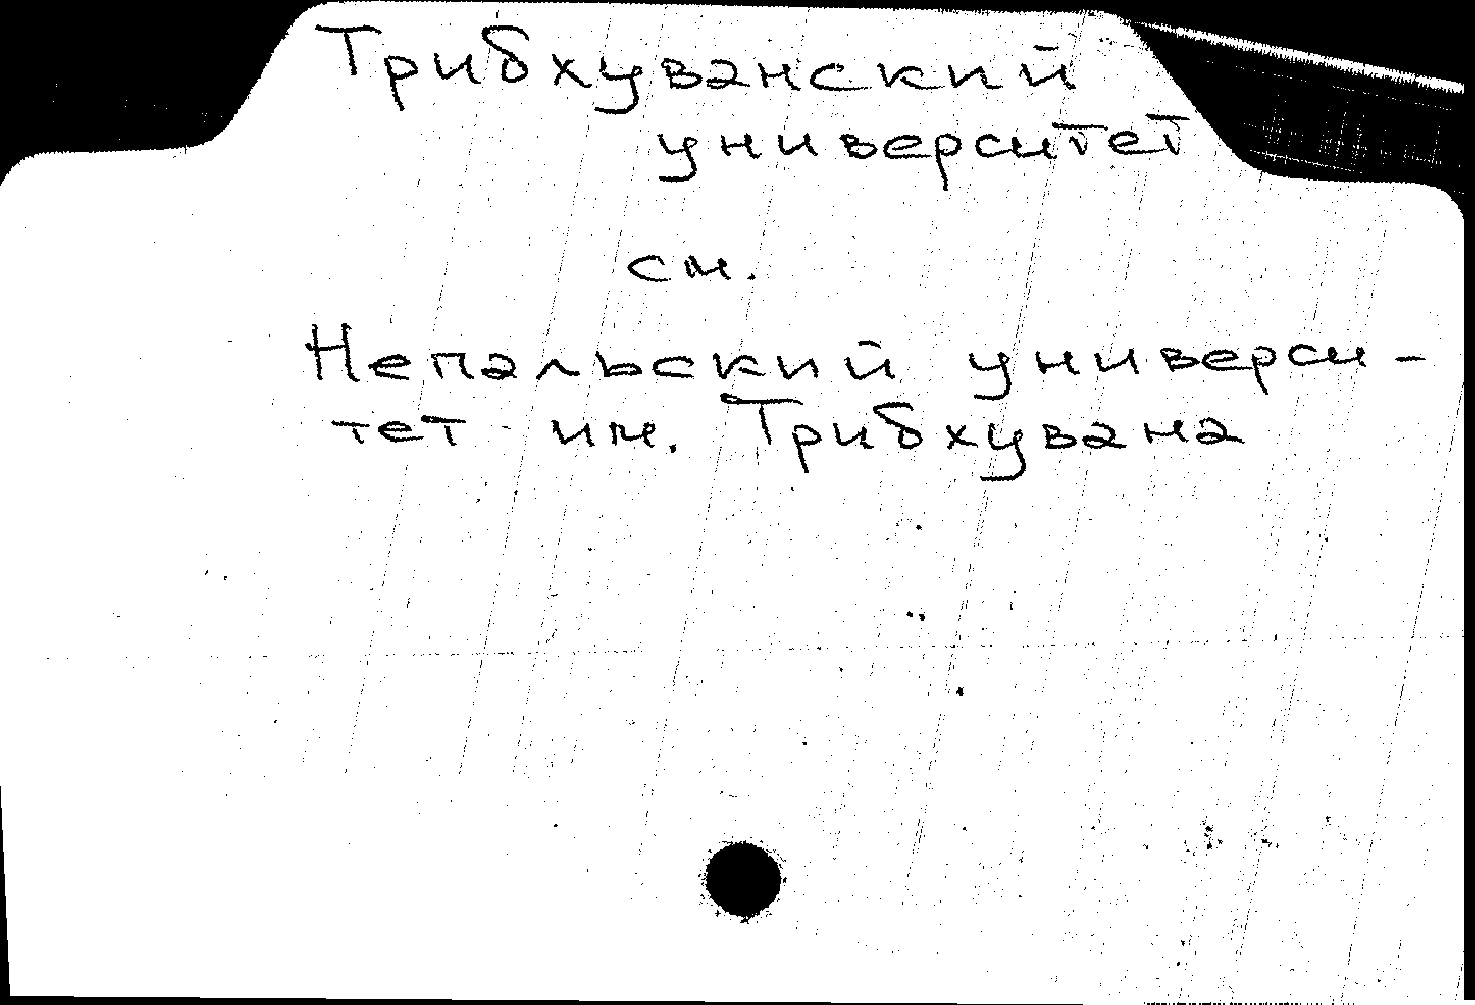 Трибхуванский
университет
см.
Непальский универси-
тет им. Трибхувана